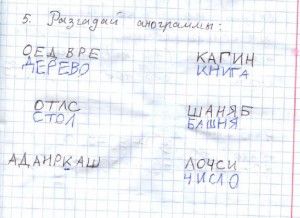 5. Разгадай анограммы:
ОЕД ВРЕ КАГИН
ДЕРЕВО КНИГА
ОТЛС ШАНЯБ
СТОЛ БАШНЯ
АДАИРКАШ ЛОЧСИ
ЧИСЛО